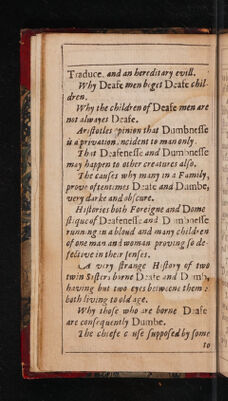 Traduce, and an hereditary evill.
Why Deafe men beget Deafe chil-
dren.
Why the children of Deafe men are
not alwayes Deafe.
Aristotles opinion that Dumbnesse
is a privation incident to man only.
That Deafenesse and Dumbnesse
may happen to other creatures also.
The causes why many in a Family,
prove oftentimes Deafe and Dumbe,
very darke and obscure.
Histories both Forreigne and Dome
stique of Deafenesse and Dumbnesse
running in a bloud and many children
of one man and woman proving so de-
fective in their senses.
A very strange History of two
twin Sisters borne Deafe and Dumbe
having but two eyes betweene them :
both living to old age.
Why those who are borne Deafe
are consequently Dumbe.
The chiefe cause supposed by some
to